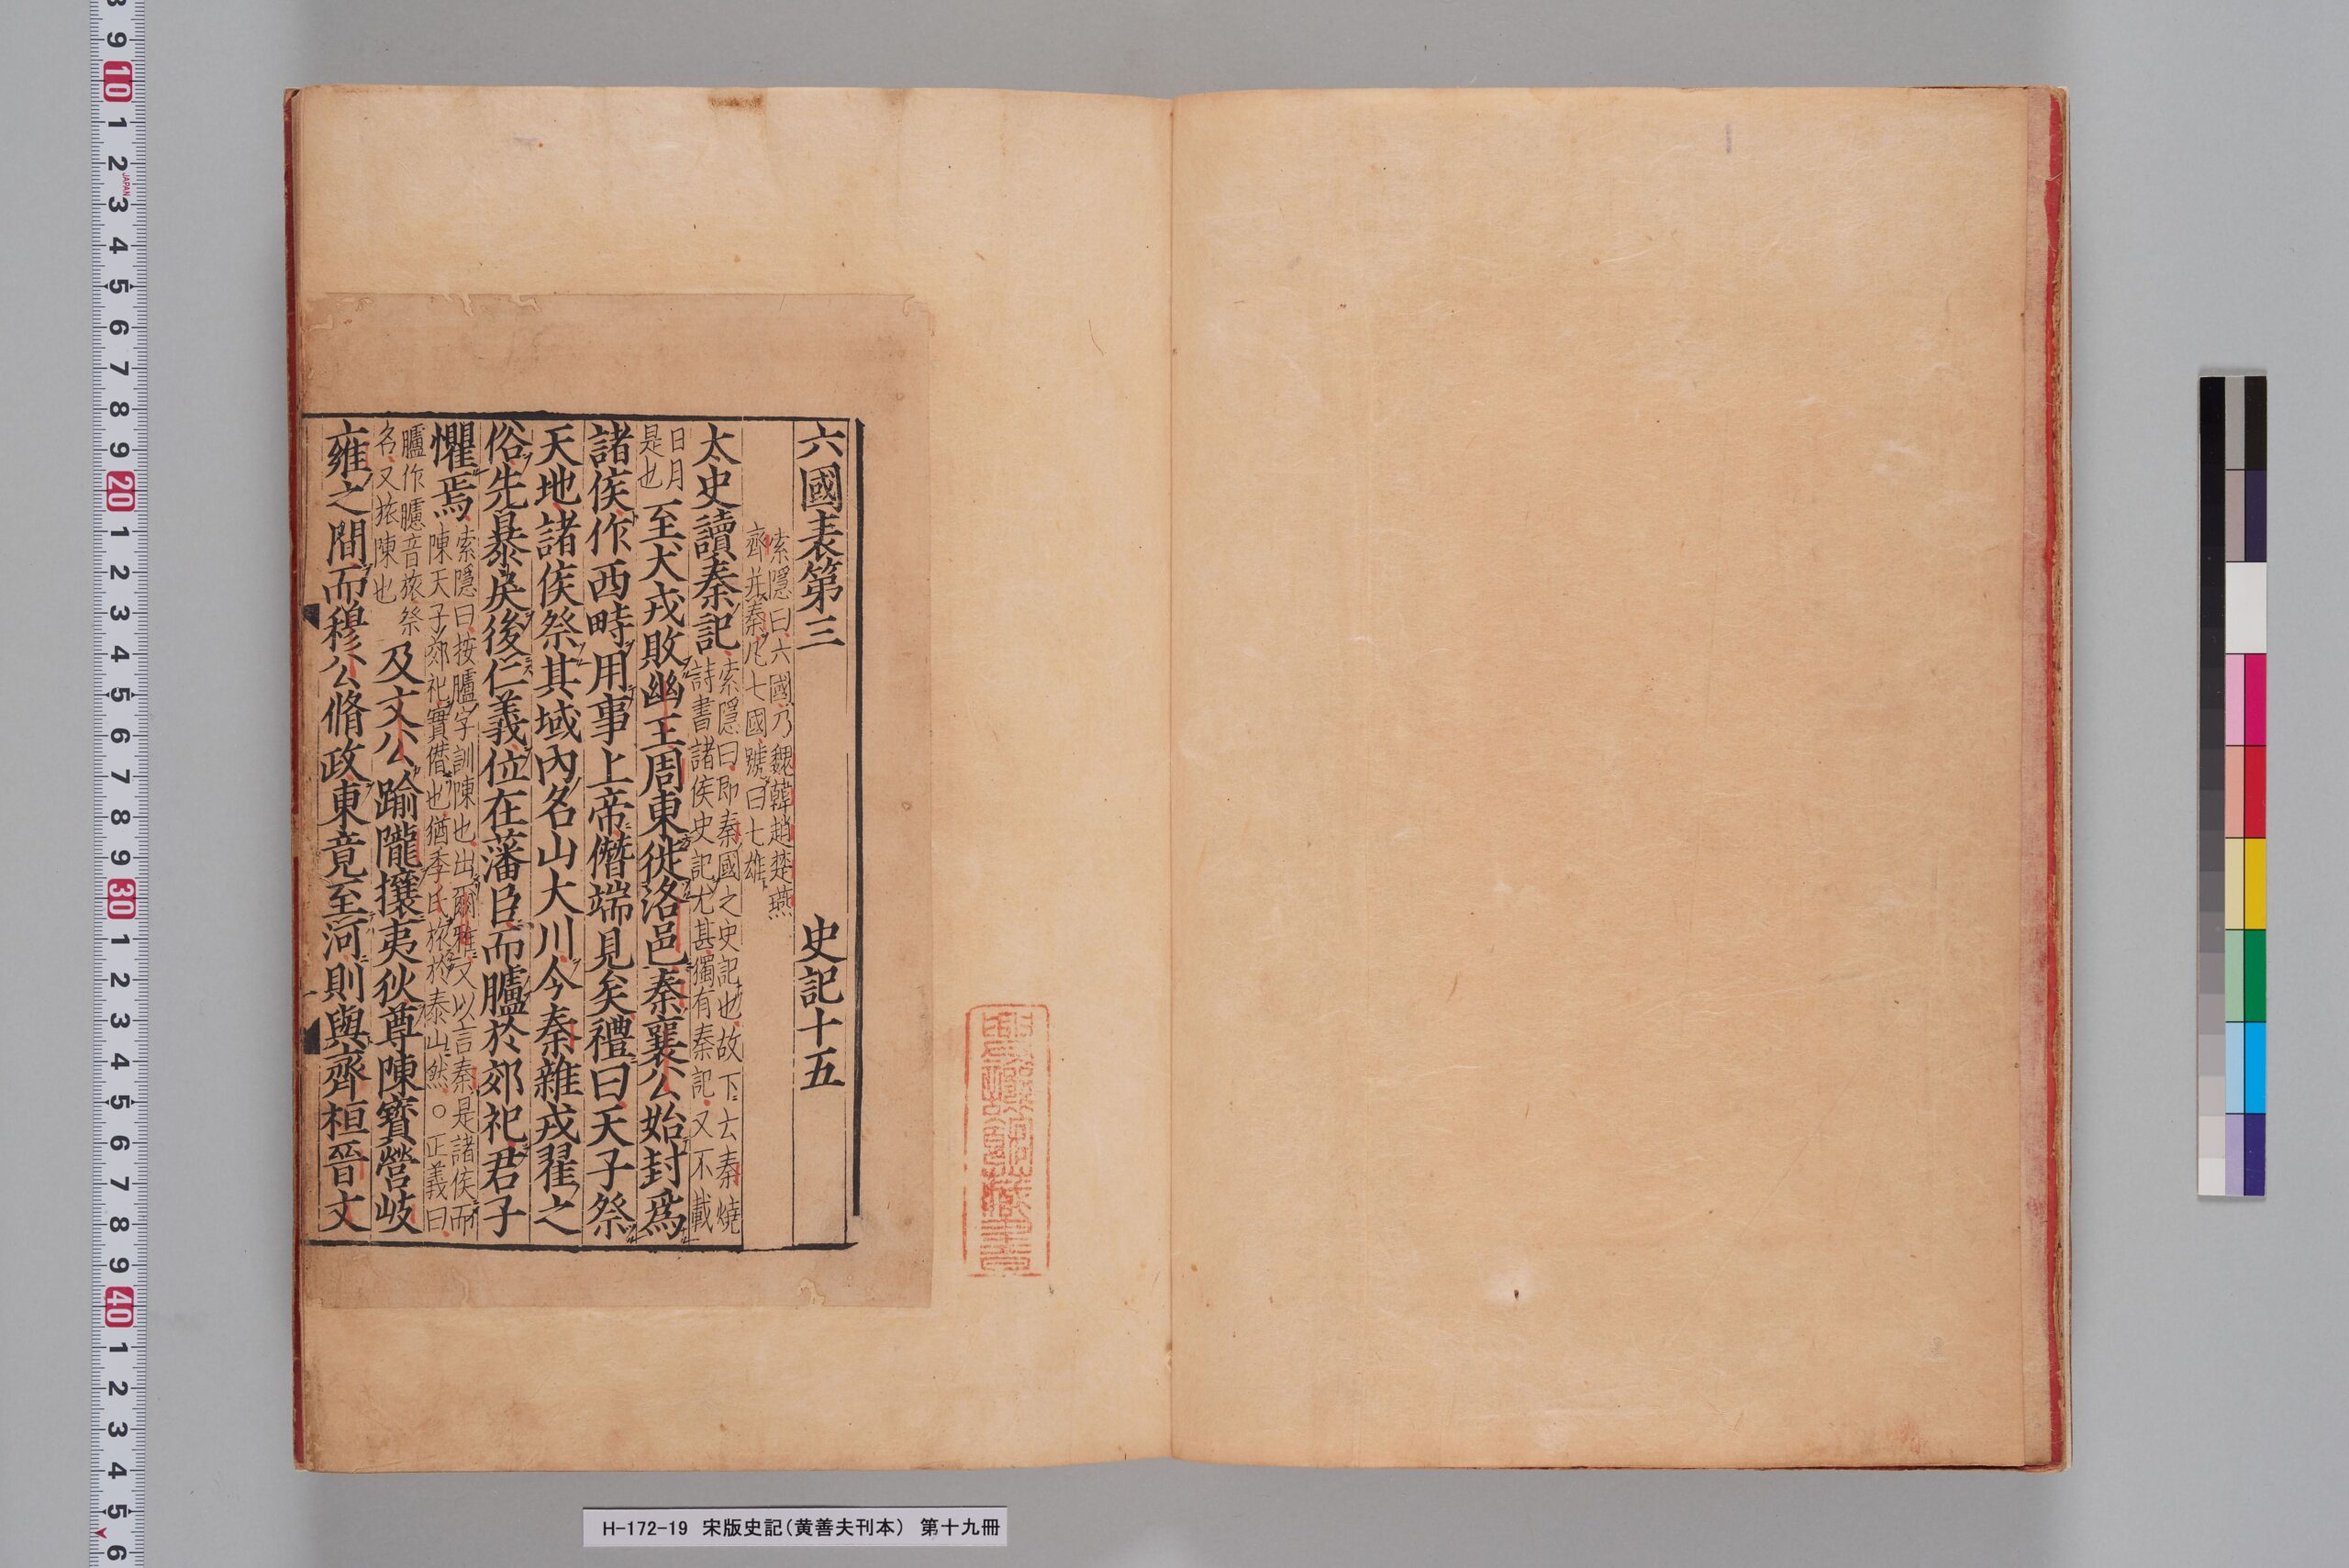 六國表第三　史記十五
索隱曰六國乃魏韓趙楚燕
齊并秦凡七國號曰七雄
太史讀秦記
索隱曰即秦國之史記也故下云秦燒
詩書諸侯史記尤甚獨有秦記又不載
日月
是也
至犬戎敗幽王周東徙洛邑秦襄公始封爲
諸侯作西畤用事上帝僭端見矣禮曰天子祭
天地諸侯祭其域內名山大川今秦雜戎翟之
俗先暴戾後仁義位在藩臣而臚於郊祀君子
懼焉
索隱曰按臚字訓陳也出爾雅文以言秦是諸侯而
陳天子郊祀實僣也猶季氏旅於泰山然○正義曰
臚作臚音旅祭
名又旅陳也
及文公踰隴攘夷狄尊陳寳營岐
雍之間而穆公脩政東竟至河則與齊桓晉文
H-172-19 宋版史記（黄善夫刊本） 第十九冊
10 1 2 3 4 5 6 7 8 9 20 1 2 3 4 5 6 7 8 9 30 1 2 3 4 5 6 7 8 9 40 1 2 3 4 5 6
JAPAN